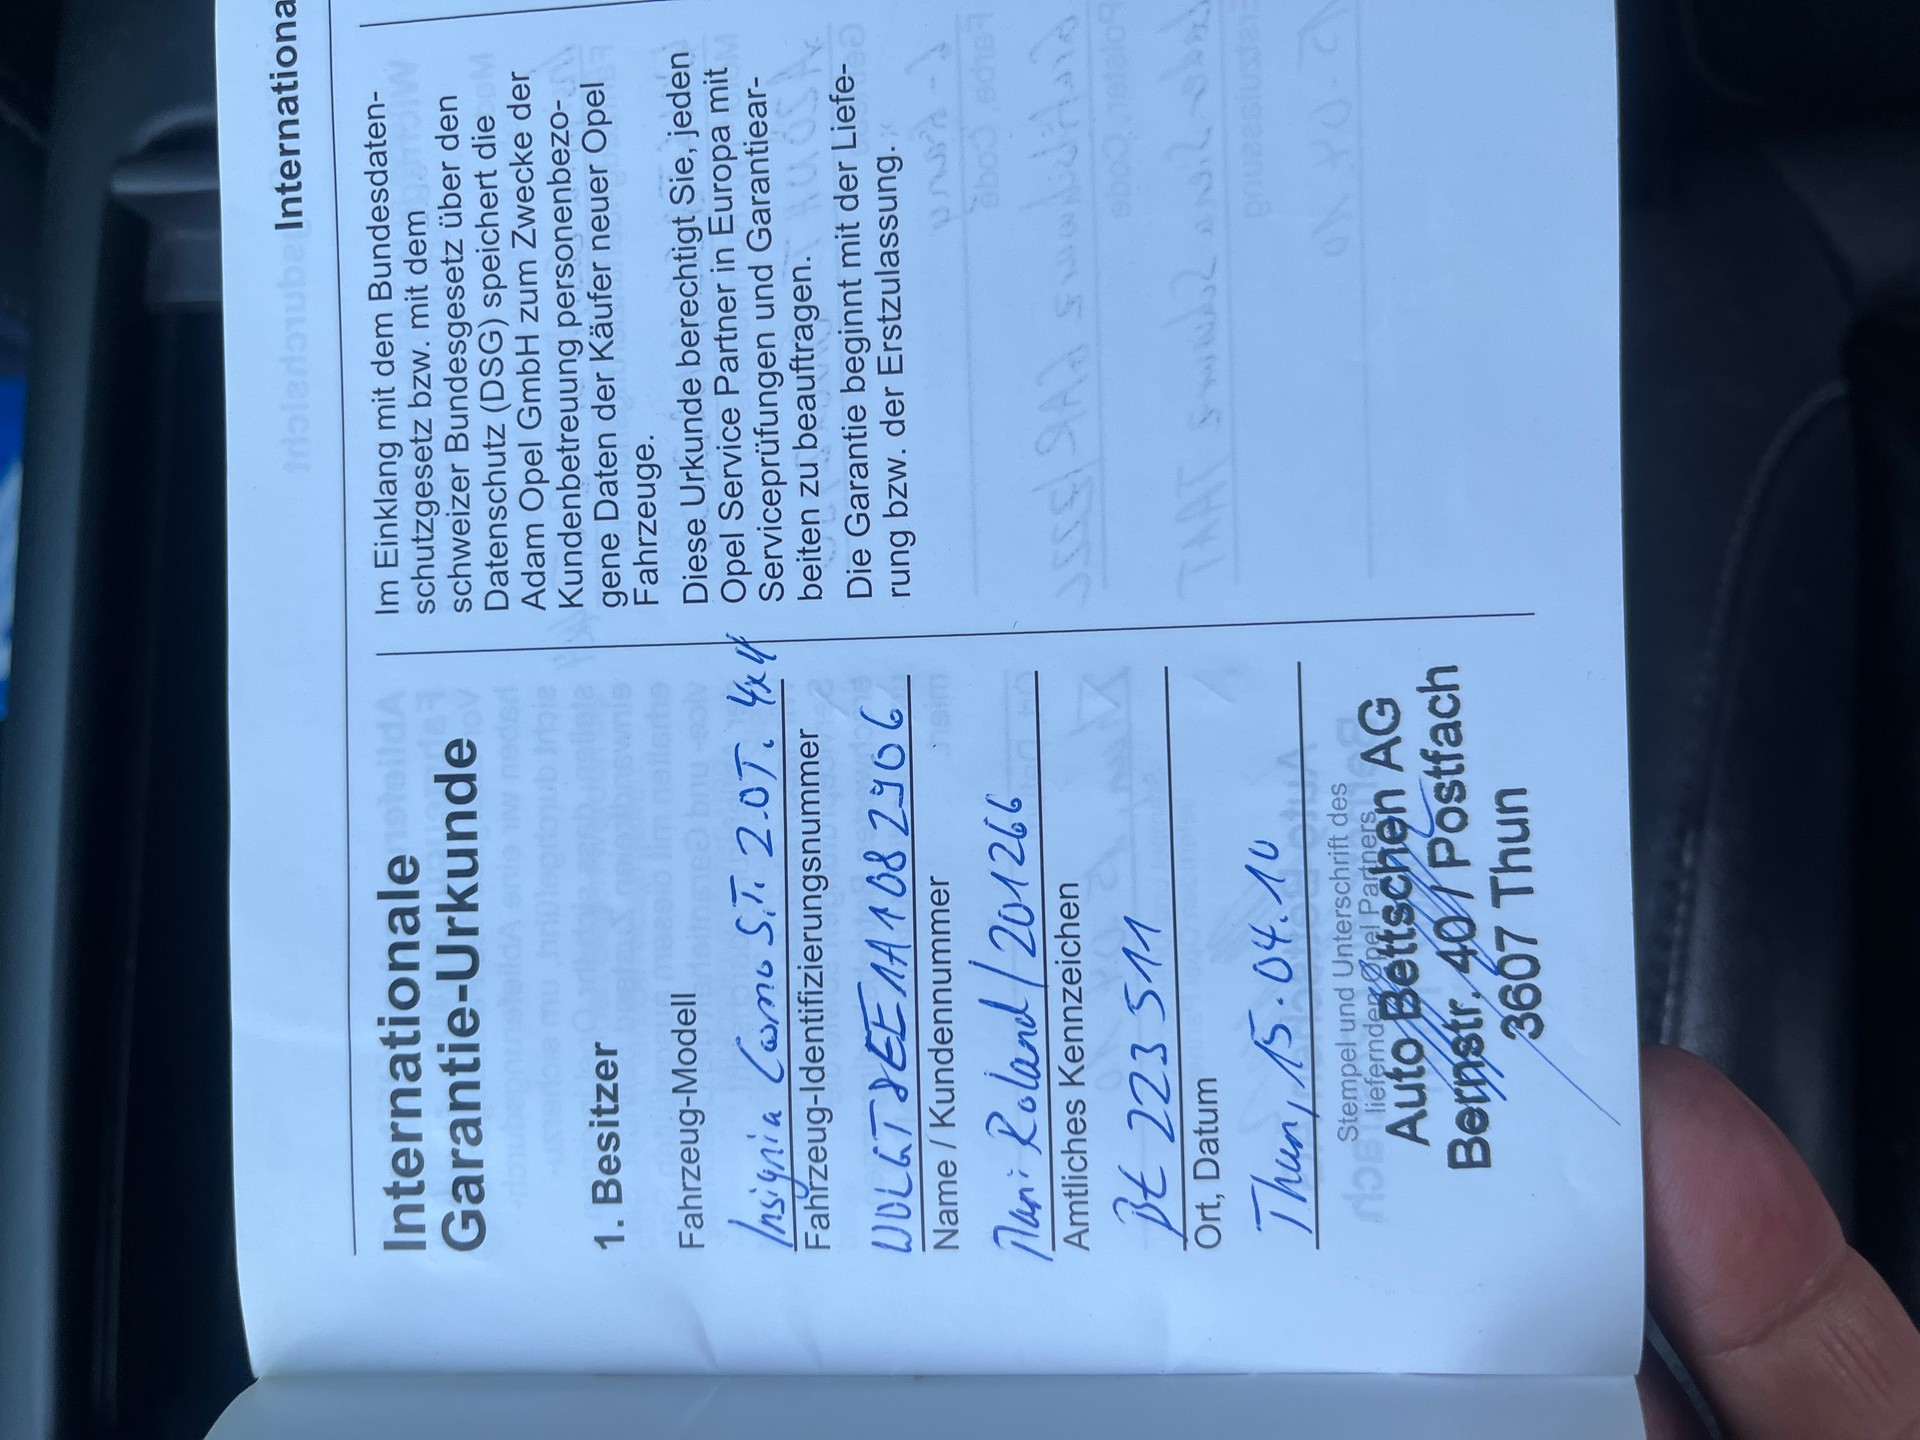 Internationa
Internationale
Garantie-Urkunde
1. Besitzer
Fahrzeug-Modell
Insignia Cosmo S.T. 2.0T. 4x4
Fahrzeug-Identifizierungsnummer
W0LGT8EE1A1082906
Name / Kundennummer
Mani Roland / 201266
Amtliches Kennzeichen
BE 223 511
Ort, Datum
Thun, 15.04.10
Stempel und Unterschrift des
liefernden Opel Partners
Auto Bettschen AG
Bernstr. 40 / Postfach
3607 Thun
Im Einklang mit dem Bundesdaten-
schutzgesetz bzw. mit dem
schweizer Bundesgesetz über den
Datenschutz (DSG) speichert die
Adam Opel GmbH zum Zwecke der
Kundenbetreuung personenbezo-
gene Daten der Käufer neuer Opel
Fahrzeuge.
Diese Urkunde berechtigt Sie, jeden
Opel Service Partner in Europa mit
Serviceprüfungen und Garantiear-
beiten zu beauftragen.
Die Garantie beginnt mit der Liefe-
rung bzw. der Erstzulassung.